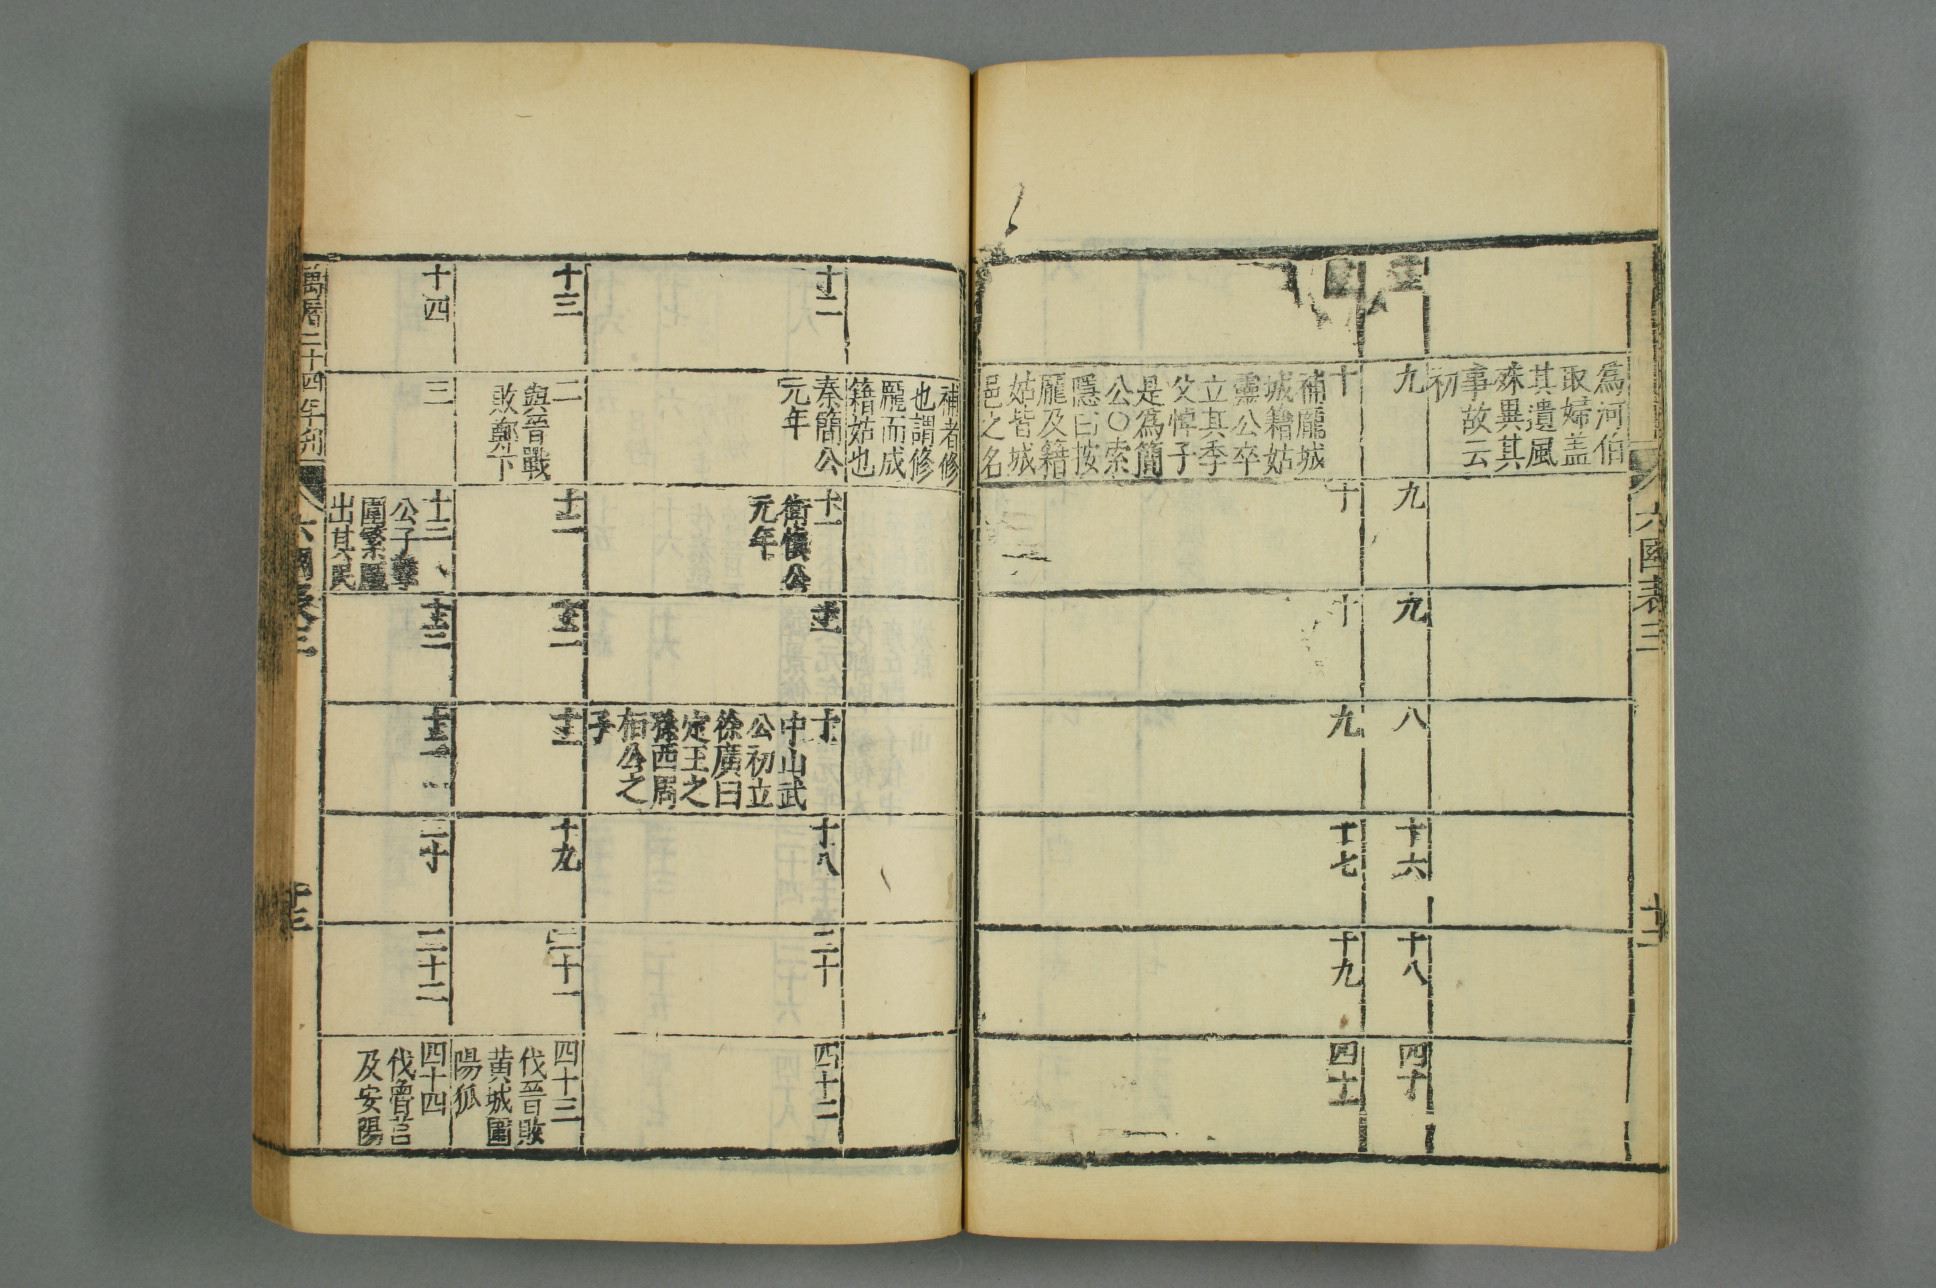 六國表三
十二
爲河伯
取婦蓋
其遺風
殊異其
事故云
初
九
九
九
八
十六
十八
四十
十
補龐城
城籍姑
靈公卒
立其季
父悼子
是爲簡
公○索
隱曰按
龐及籍
姑皆城
邑之名
十
十
九
十七
十九
四十一
補者修
也謂修
龐而成
籍姑也
十二
秦簡公
元年
十一
衛愼公
元年
十一
十
中山武
公初立
徐廣曰
定王之
孫西周
桓公之
子
十八
二十
四十二
十三
二
與晉戰
敗鄭下
十二
十二
十一
十九
二十一
四十三
伐晉敗
黄城圍
陽狐
十四
三
十三
公子擊
圍繁龐
出其民
十三
十二
二十
二十二
四十四
伐魯莒
及安陽
萬曆二十四年刊
六國表三
十三